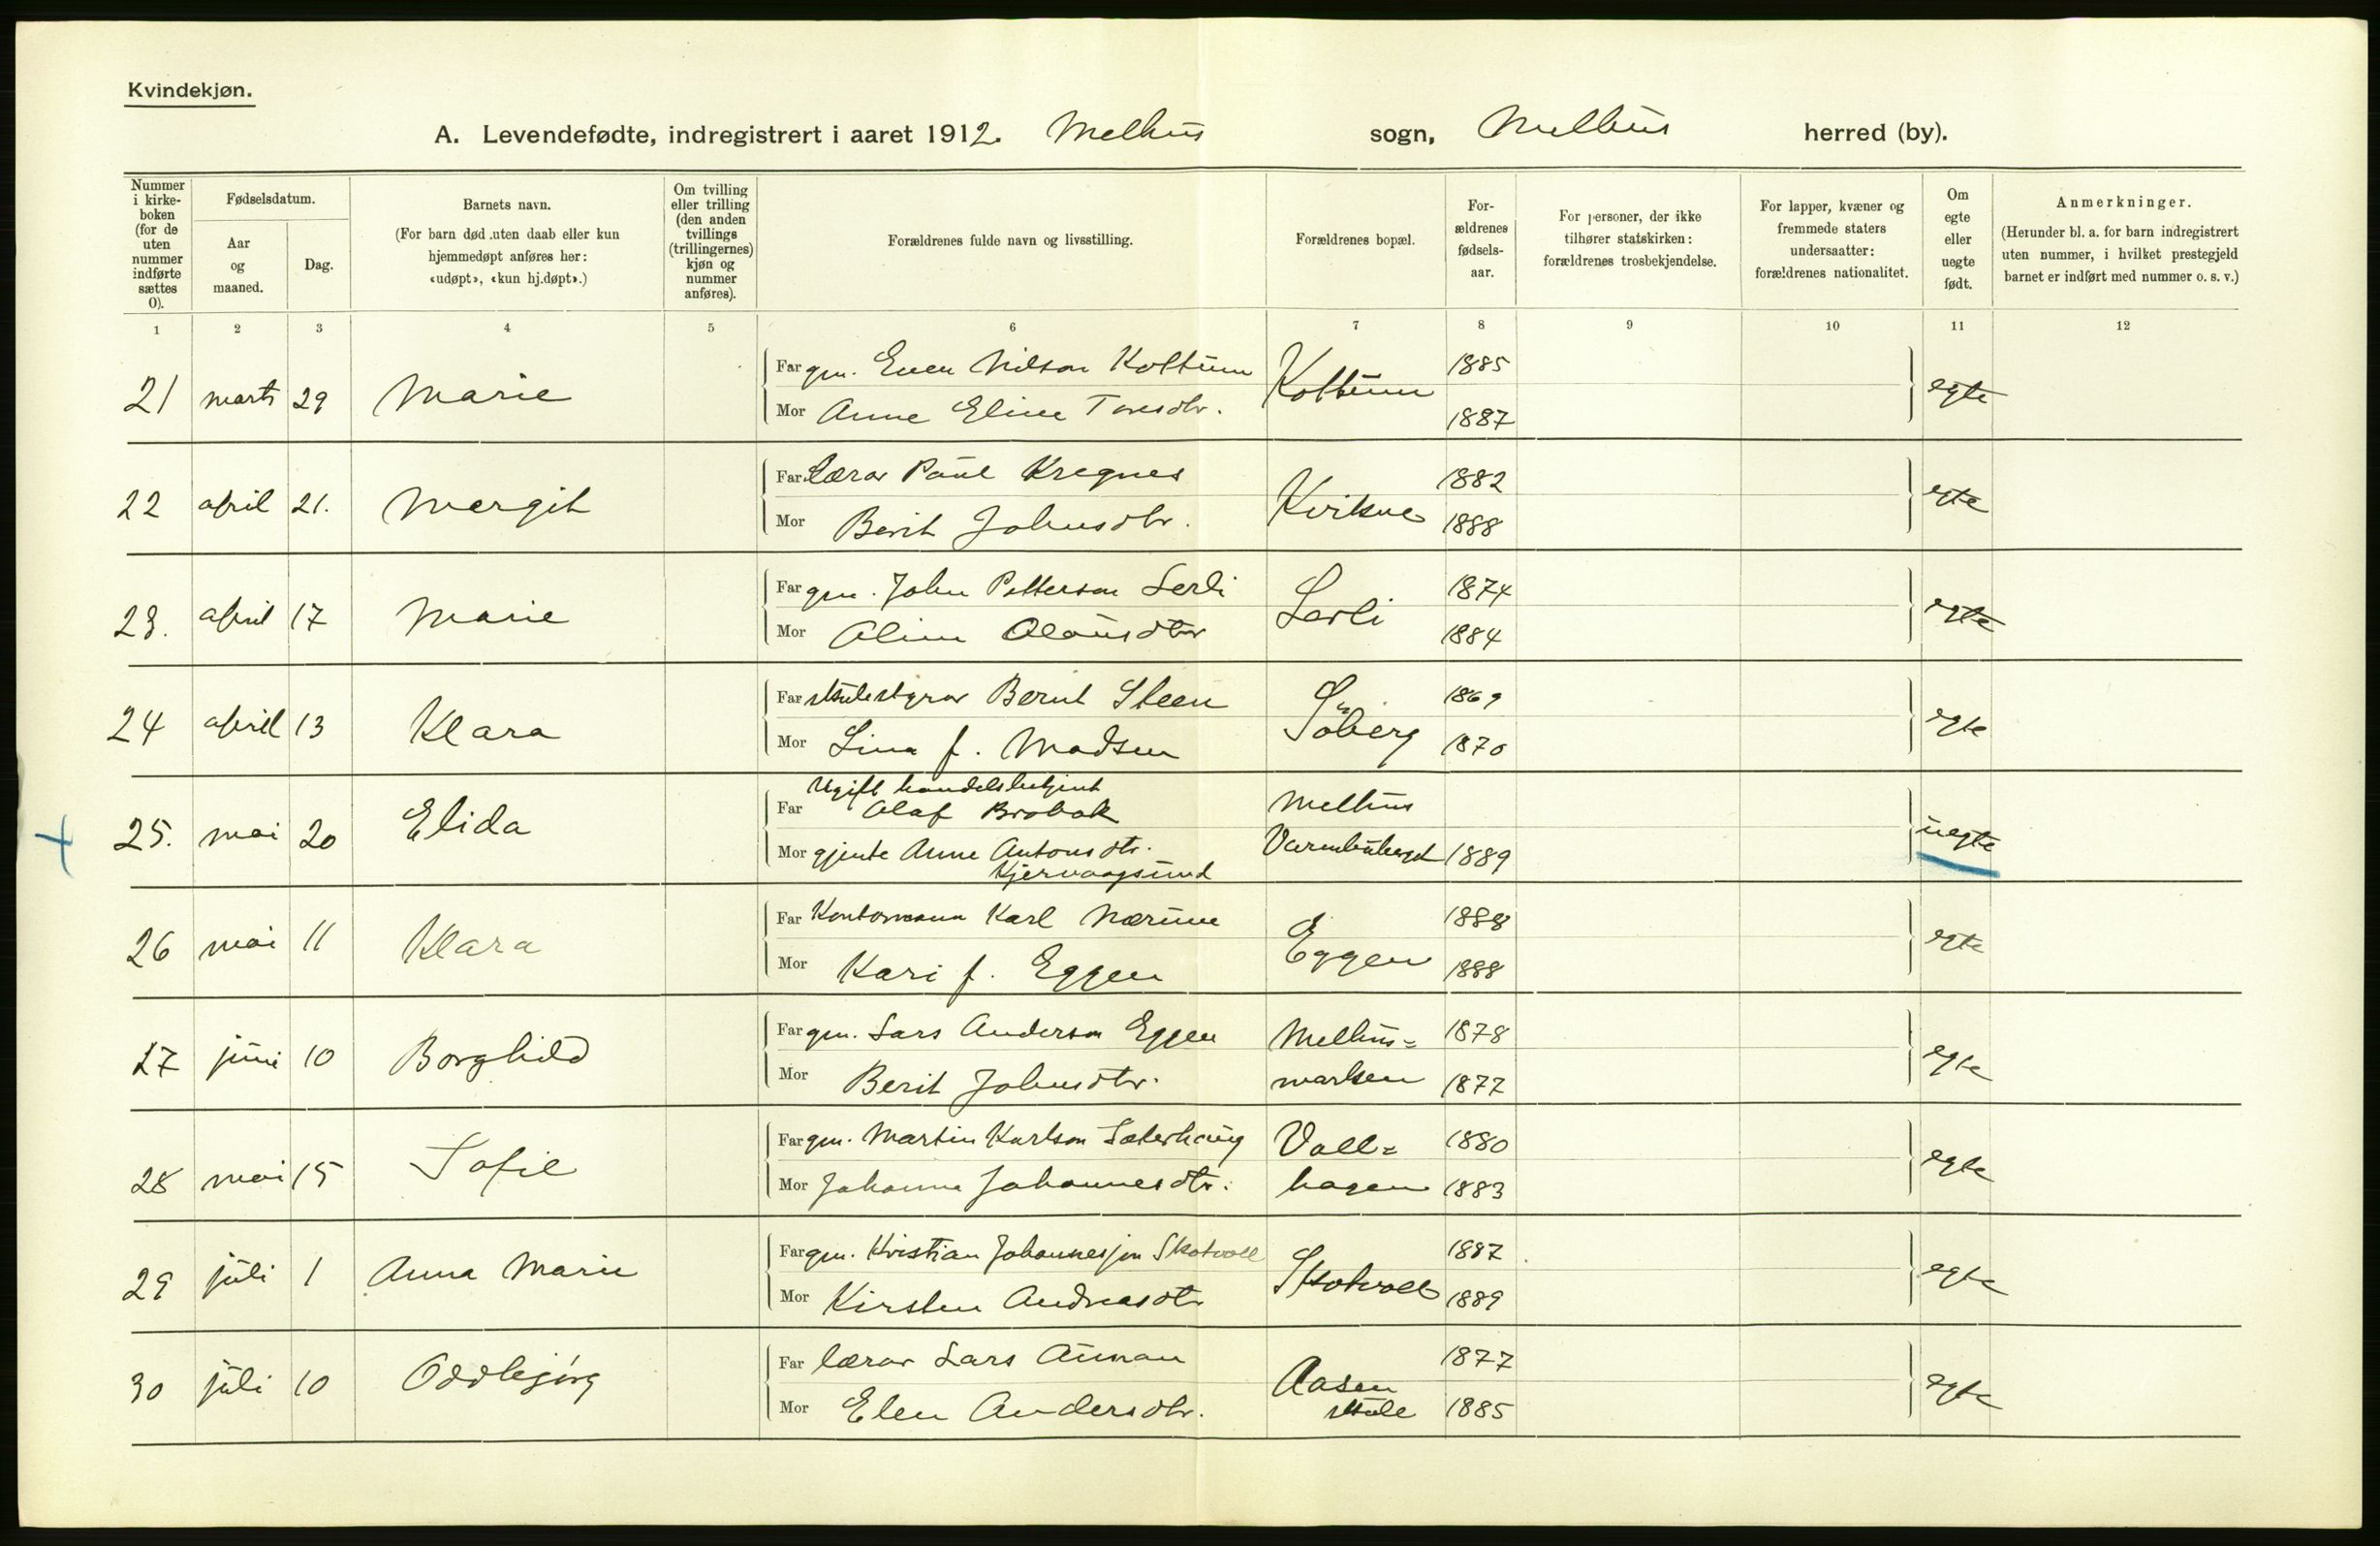 Kvindekjøn.
A. Levendefødte, indregistrert i aaret 1912. Melhus sogn, Melhus herred (by).
Nummer i kirkeboken (for de uten nummer indførte sættes 0).
Fødselsdatum.
Aar og maaned.
Dag.
Barnets navn.
(For barn død uten daab eller kun hjemmedøpt anføres her: «udøpt», «kun hj.døpt».)
Om tvilling eller trilling (den anden tvillings (trillingernes) kjøn og nummer anføres).
Forældrenes fulde navn og livsstilling.
Forældrenes bopæl.
Forældrenes fødselsaar.
For personer, der ikke tilhører statskirken: forældrenes trosbekjendelse.
For lapper, kvæner og fremmede staters undersaatter: forældrenes nationalitet.
Om egte eller uegte født.
Anmerkninger.
(Herunder bl. a. for barn indregistrert uten nummer, i hvilket prestegjeld barnet er indført med nummer o. s. v.)
1 2 3 4 5 6 7 8 9 10 11 12
21 marts 29 Marie Far gm. Even Nilson Kottum Kottum 1885 egte
Mor Anne Eline Toresdtr. 1887
22 april 21. Margit Far lærer Paul Kregnes Kvikne 1882 egte
Mor Berit Johnsdtr. 1888
23. april 17 Marie Far gm. John Petterson Lerli Lerli 1874 egte
Mor Oline Olausdtr 1884
24 april 13 Klara Far skulestyrar Bernt Steen Søberg 1869 egte
Mor Lina f. Madsen 1870
25. mai 20 Elida Far Ugift handelsbetjent
Olaf Brobak Melhus uegte
Mor gjente Anne Antonsdtr. 1889
Kjervaagsund
26 mai 11 Klara Far Kontormann Karl Nærum Eggen 1888 egte
Mor Kari f. Eggen 1888
27 juni 10 Borghild Far gm. Lars Anderson Eggen Melhus= 1878 egte
Mor Berit Johnsdtr. marken 1877
28 mai 15 Sofie Far gm. Martin Karlson Sæterhaug Voll= 1880 egte
Mor Johanna Johannesdtr. hagen 1883
29 juli 1 Anna Marie Far gm. Kristian Johannesson Skotvoll Skotvoll 1887 egte
Mor Kirsten Andreasdtr 1889
30 juli 10 Oddbjørg Far lærer Lars Aunan Aasen 1877 egte
Mor Elen Andersdtr. skule 1885